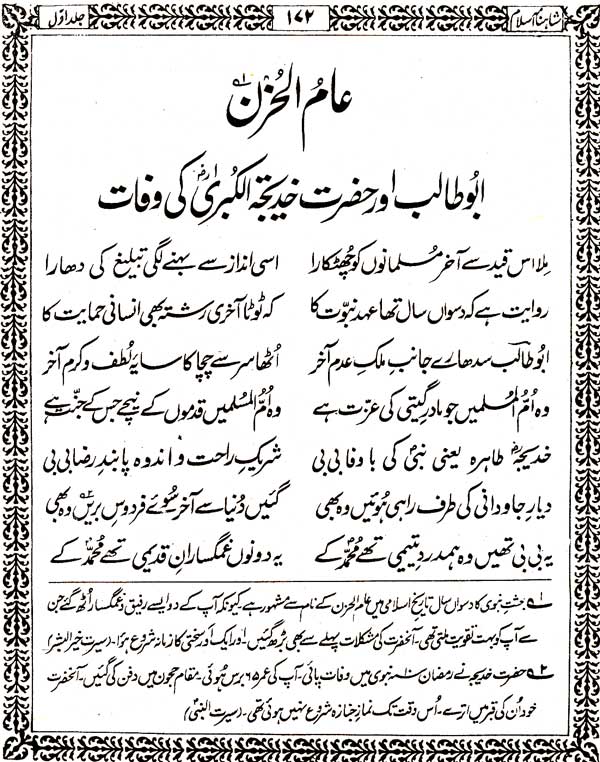 شاہنامہ اسلام ۱۷۲ جلد اوّل
عامُ الحُزن ۱؎
ابُوطالب اور حضرت خدیجۃ الکبریٰؓ کی وفات
مِلا اس قید سے آخر مسلمانوں کو چھٹکارا اسی انداز سے بہنے لگی تبلیغ کی دھارا
روایت ہے کہ دسواں سال تھا عہدِ نبوّت کا کہ ٹوٹا آخری رشتہ بھی انسانی حمایت کا
ابُوطالب سدھارے جانبِ ملکِ عدم آخر اُٹھا سر سے چچا کا سایۂ لُطف و کرم آخر
وہ اُمّ المُسلمیں جو مادرِ گیتی کی عزّت ہے وہ اُمّ المُسلمیں قدموں کے نیچے جس کے جنّت ہے
خدیجہؓ طاہرہ یعنی نبیؐ کی باوفا بی بی شریکِ راحت و اندوہ پابندِ رضا بی بی
دیارِ جاودانی کی طرف راہی ہُوئیں وہ بھی گئیں دُنیا سے آخر سُوئے فردوسِ بریں وہ بھی ۲؎
یہ بی بی تھیں وہ ہمدردِ یتیمی تھے محمدؐ کے یہ دونوں غمگسارانِ قدیمی تھے محمدؐ کے
۱؎ بعثتِ نبوی کا دسواں سال تاریخِ اسلامی میں عام الحزن کے نام سے مشہور ہے کیونکہ آپ کے دو ایسے رفیق و غمگسار اُٹھ گئے جن
سے آپ کو بہت تقویت ملتی تھی۔ آنحضرت کی مشکلات پہلے سے بھی بڑھ گئیں۔ اور ایک اور سختی کا زمانہ شروع ہوا۔ (سیرت خیرالبشر)
۲؎ حضرت خدیجہ نے رمضان ۱۰ نبوی میں وفات پائی۔ آپ کی عمر ۶۵ برس ہُوئی۔ بمقام حجون میں دفن کی گئیں۔ آنحضرت
خود اُن کی قبر میں اترے۔ اُس وقت تک نمازِ جنازہ شروع نہیں ہوئی تھی۔ (سیرت النبیؐ)